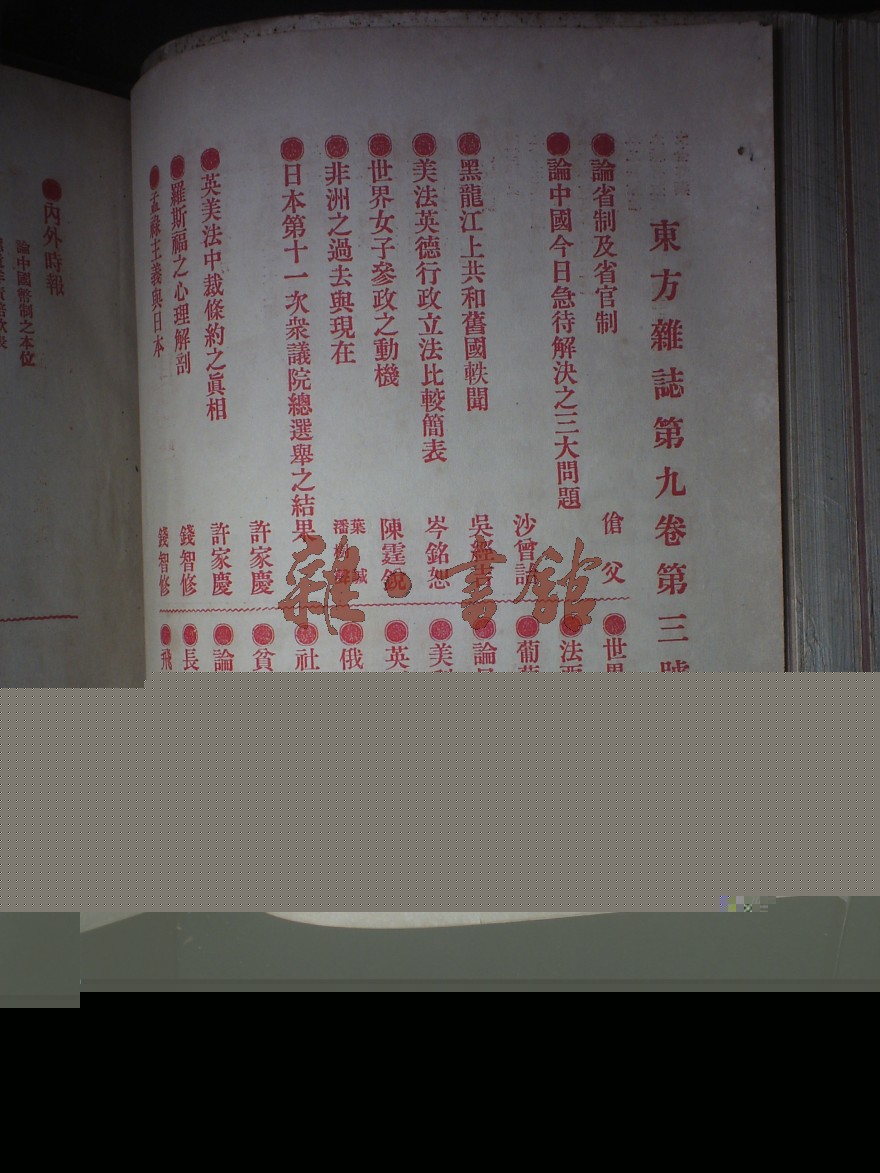 東方雜誌第九卷第三號
論省制及省官制
傖父
論中國今日急待解決之三大問題
黑龍江上共和舊國軼聞
沙曾詒
美法英德行政立法比較簡表
吳經吉
世界女子參政之動機
岑銘恕
非洲之過去與現在
陳霆銳
日本第十一次衆議院總選舉之結果
葉
潘
許家慶
英美法中裁條約之眞相
許家慶
羅斯福之心理解剖
錢智修
孟祿主義與日本
錢智修
世界
法西
葡萄
論
美利
英
俄
社
貧
論
長
飛
內外時報
論中國幣制之本位
雜·書館